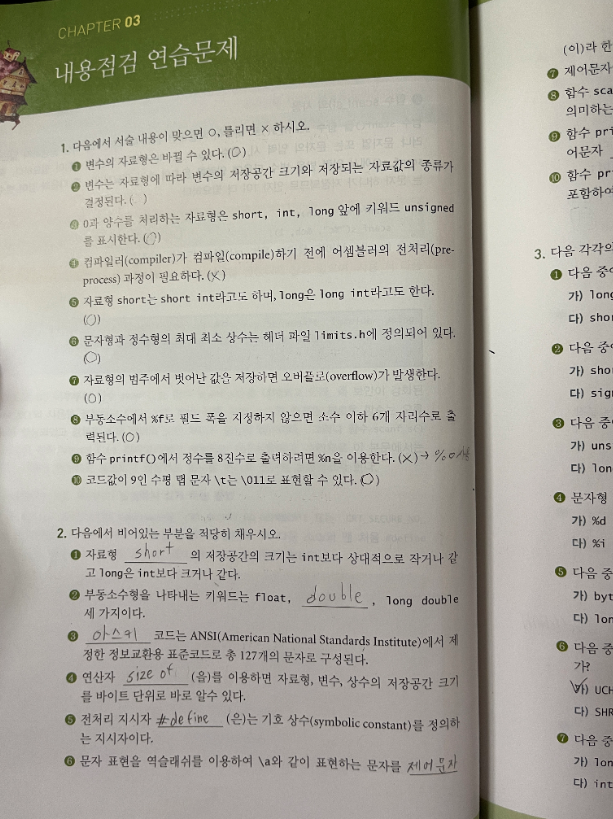 CHAPTER 03
내용점검 연습문제
1. 다음에서 서술 내용이 맞으면 O, 틀리면 × 하시오.
❶ 변수의 자료형은 바뀔 수 있다. (O)
❷ 변수는 자료형에 따라 변수의 저장공간 크기와 저장되는 자료값의 종류가
결정된다. ( )
❸ 0과 양수를 처리하는 자료형은 short, int, long 앞에 키워드 unsigned
를 표시한다. (O)
❹ 컴파일러(compiler)가 컴파일(compile)하기 전에 어셈블러의 전처리(pre-
process) 과정이 필요하다. (X)
❺ 자료형 short는 short int라고도 하며, long은 long int라고도 한다.
(O)
❻ 문자형과 정수형의 최대 최소 상수는 헤더 파일 limits.h에 정의되어 있다.
(O)
❼ 자료형의 범주에서 벗어난 값은 저장하면 오버플로(overflow)가 발생한다.
(O)
❽ 부동소수에서 %f로 필드 폭을 지정하지 않으면 소수 이하 6개 자리수로 출
력된다. (O)
❾ 함수 printf()에서 정수를 8진수로 출력하려면 %n을 이용한다. (X) → %o
❿ 코드값이 9인 수평 탭 문자 \t는 \011로 표현할 수 있다. (O)
2. 다음에서 비어있는 부분을 적당히 채우시오.
❶ 자료형 short 의 저장공간의 크기는 int보다 상대적으로 작거나 같
고 long은 int보다 크거나 같다.
❷ 부동소수형을 나타내는 키워드는 float, double , long double
세 가지이다.
❸ 아스키 코드는 ANSI(American National Standards Institute)에서 제
정한 정보교환용 표준코드로 총 127개의 문자로 구성된다.
❹ 연산자 size of (을)를 이용하면 자료형, 변수, 상수의 저장공간 크기
를 바이트 단위로 바로 알수 있다.
❺ 전처리 지시자 #define (은)는 기호 상수(symbolic constant)를 정의하
는 지시자이다.
❻ 문자 표현을 역슬래쉬를 이용하여 \a와 같이 표현하는 문자를 제어문자
(이)라 한
❼ 제어문자
❽ 함수 sca
의미하는
❾ 함수 pri
어문자
❿ 함수 pr
포함하여
3. 다음 각각의
❶ 다음 중
가) long
다) shor
❷ 다음 중
가) shor
다) sig
❸ 다음 중
가) uns
다) lon
❹ 문자형
가) %d
다) %i
❺ 다음 중
가) byt
다) lon
❻ 다음 중
가?
가) UCH
다) SHR
❼ 다음 중
가) lon
다) int